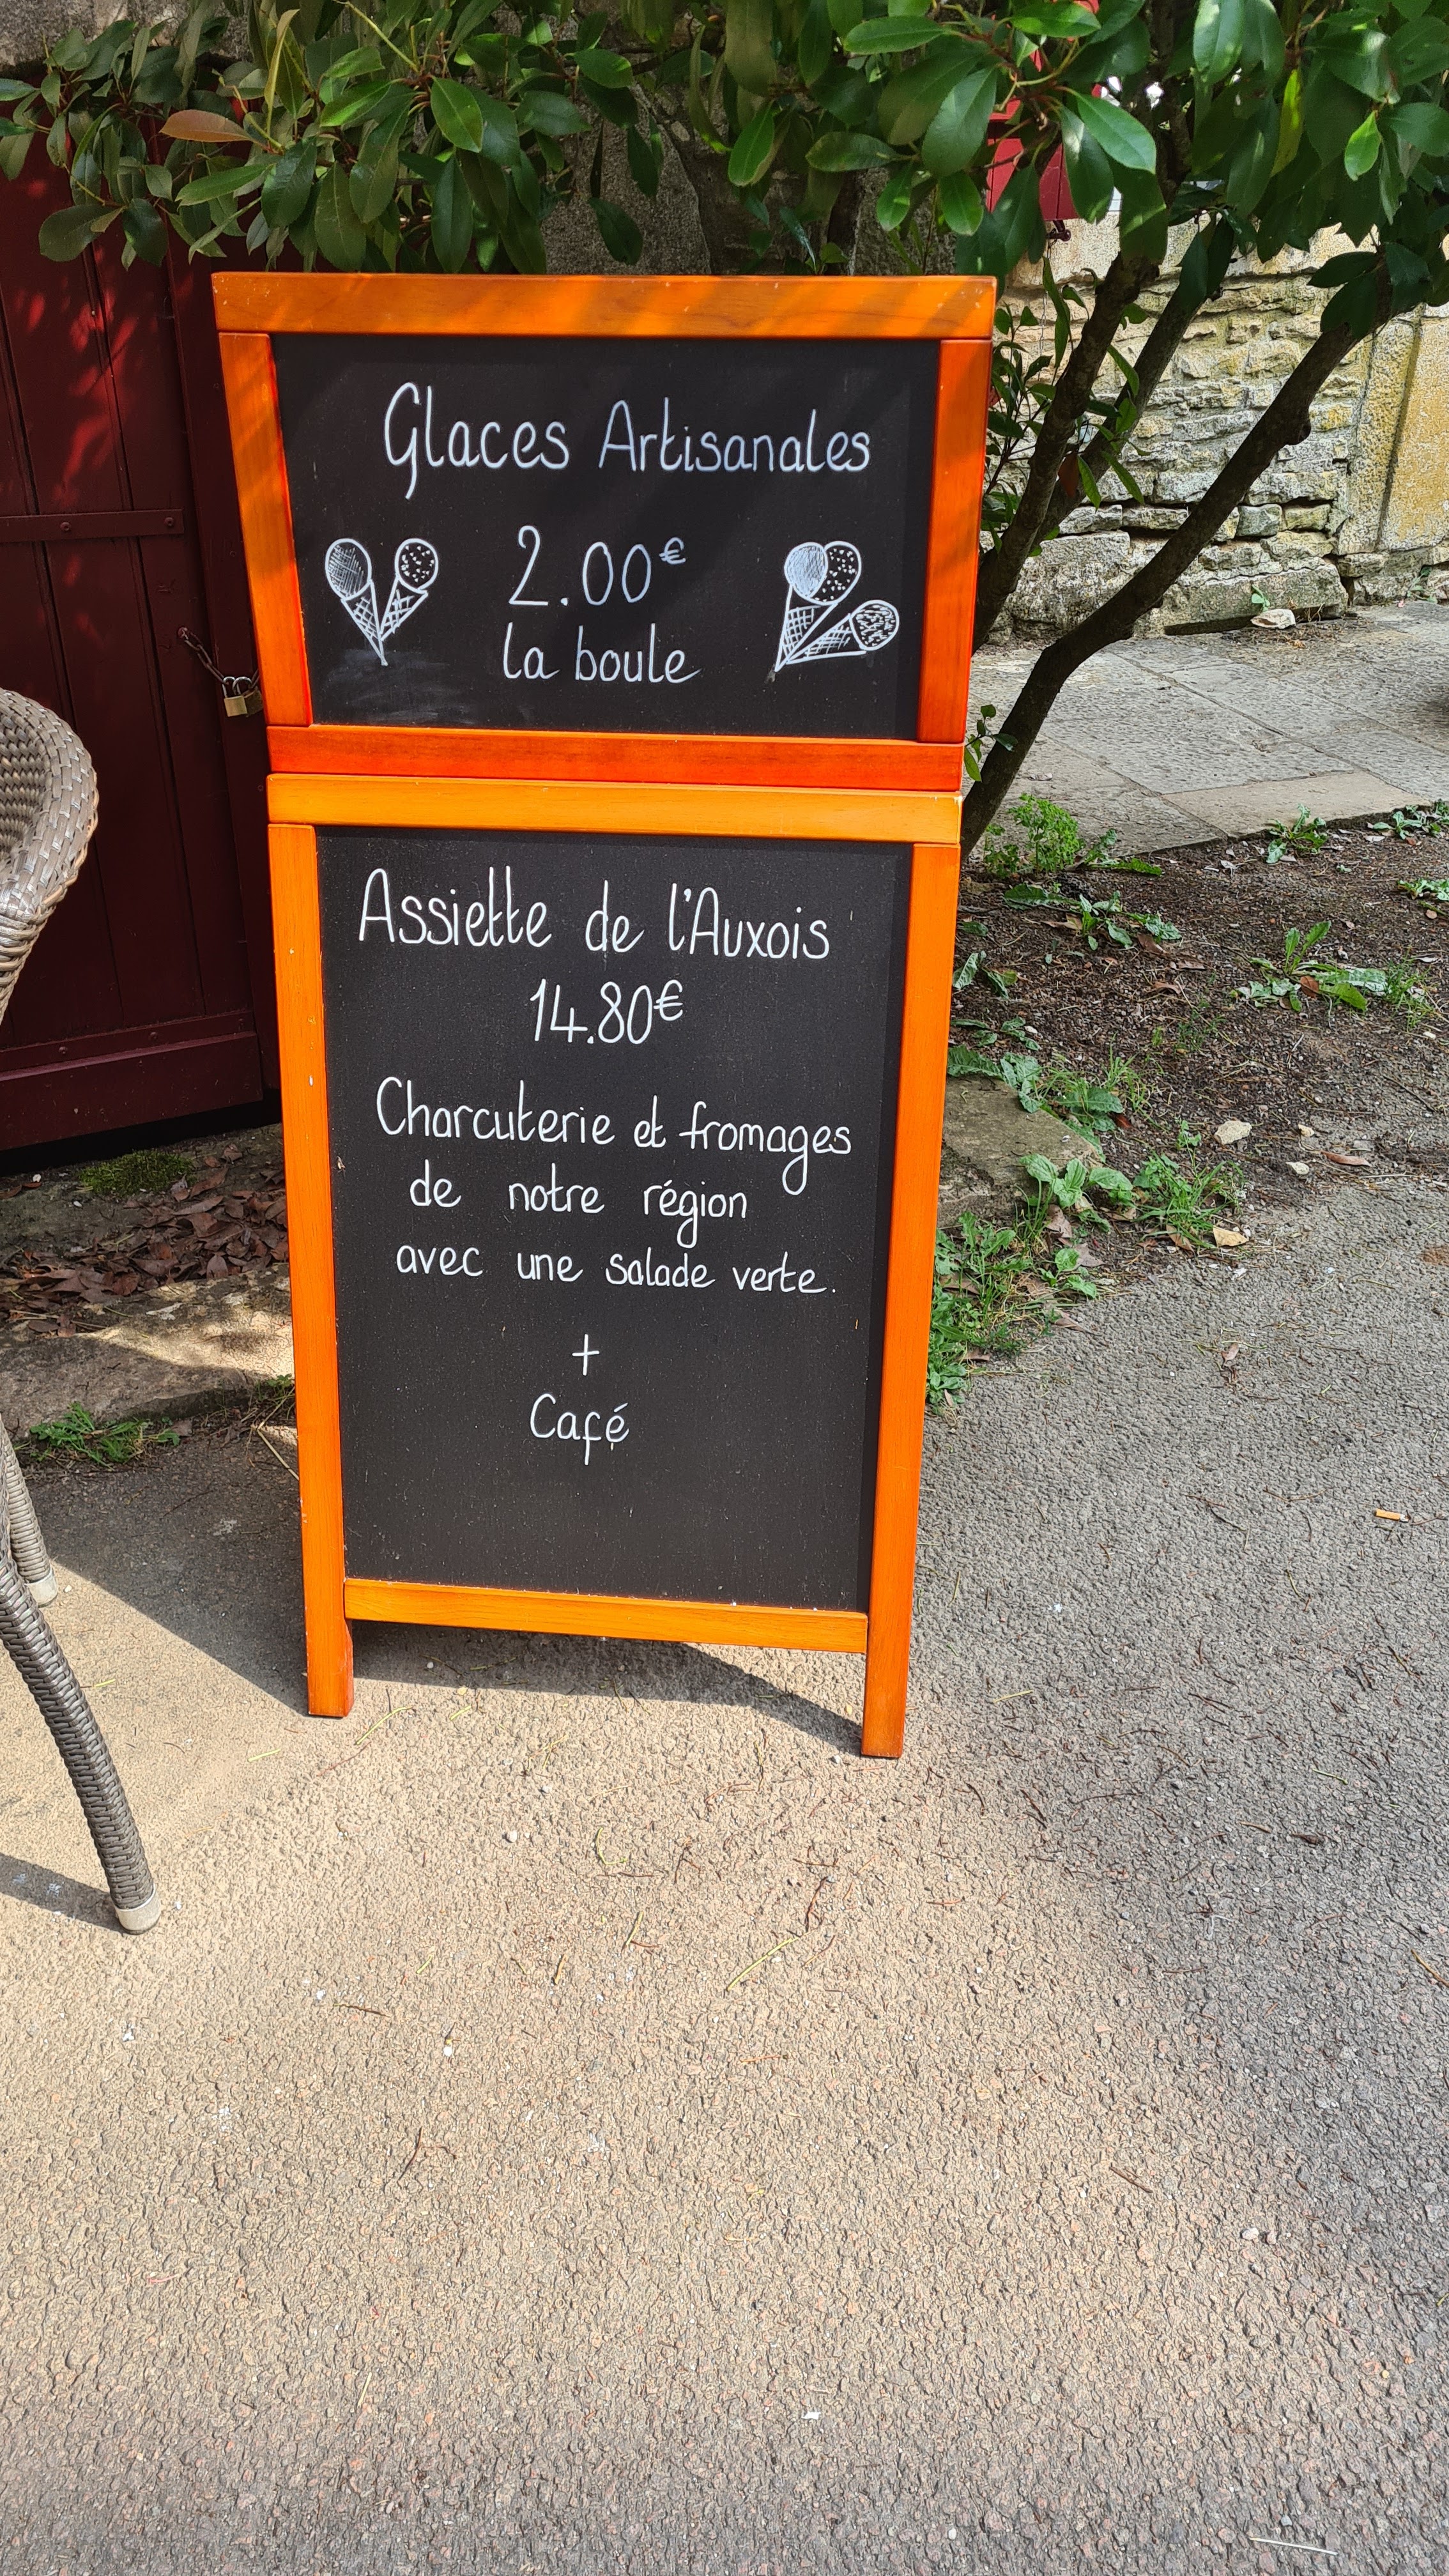 Glaces Artisanales
2.00€
la boule
Assiette de l'Auxois
14.80€
Charcuterie et fromages
de notre région
avec une salade verte.
+
Café